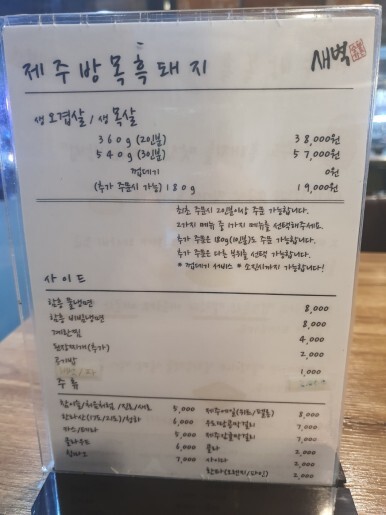 제주방목흑돼지
새벽
생 오겹살 / 생 목살
360g (2인분) 38,000원
540g (3인분) 57,000원
껍데기 0원
(추가 주문시 가능) 180g 19,000원
최초 주문시 2인분이상 주문 가능합니다.
2가지 메뉴 중 1가지 메뉴를 선택해주세요.
추가 주문은 180g(1인분)도 주문 가능합니다.
추가 주문은 다른 부위를 선택 가능합니다.
* 껍데기 서비스 * 소진시까지 가능합니다!
사이드
함흥 물냉면 8,000
함흥 비빔냉면 8,000
계란찜 4,000
된장찌개(추가) 2,000
공기밥 1,000
주류
참이슬/처음처럼/진로/새로 5,000
한라산(21도/17도)/청하 6,000
카스/테라 5,000
클라우드 6,000
7,000
제주에일 8,000
우도땅콩막걸리 7,000
제주감귤막걸리 7,000
콜라 2,000
사이다 2,000
환타(오렌지/파인) 2,000